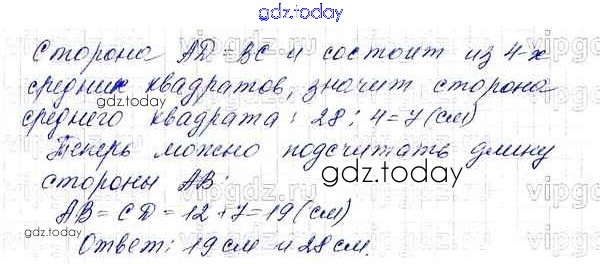 gdz.today
Сторона AD = BC и состоит из 4-х
средних квадратов, значит сторона
gdz.today
среднего квадрата: 28 : 4 = 7 (см)
Теперь можно подсчитать длину
gdz.today
стороны AB:
gdz.today
AB = CD = 12 + 7 = 19 (см)
Ответ: 19 см и 28 см.